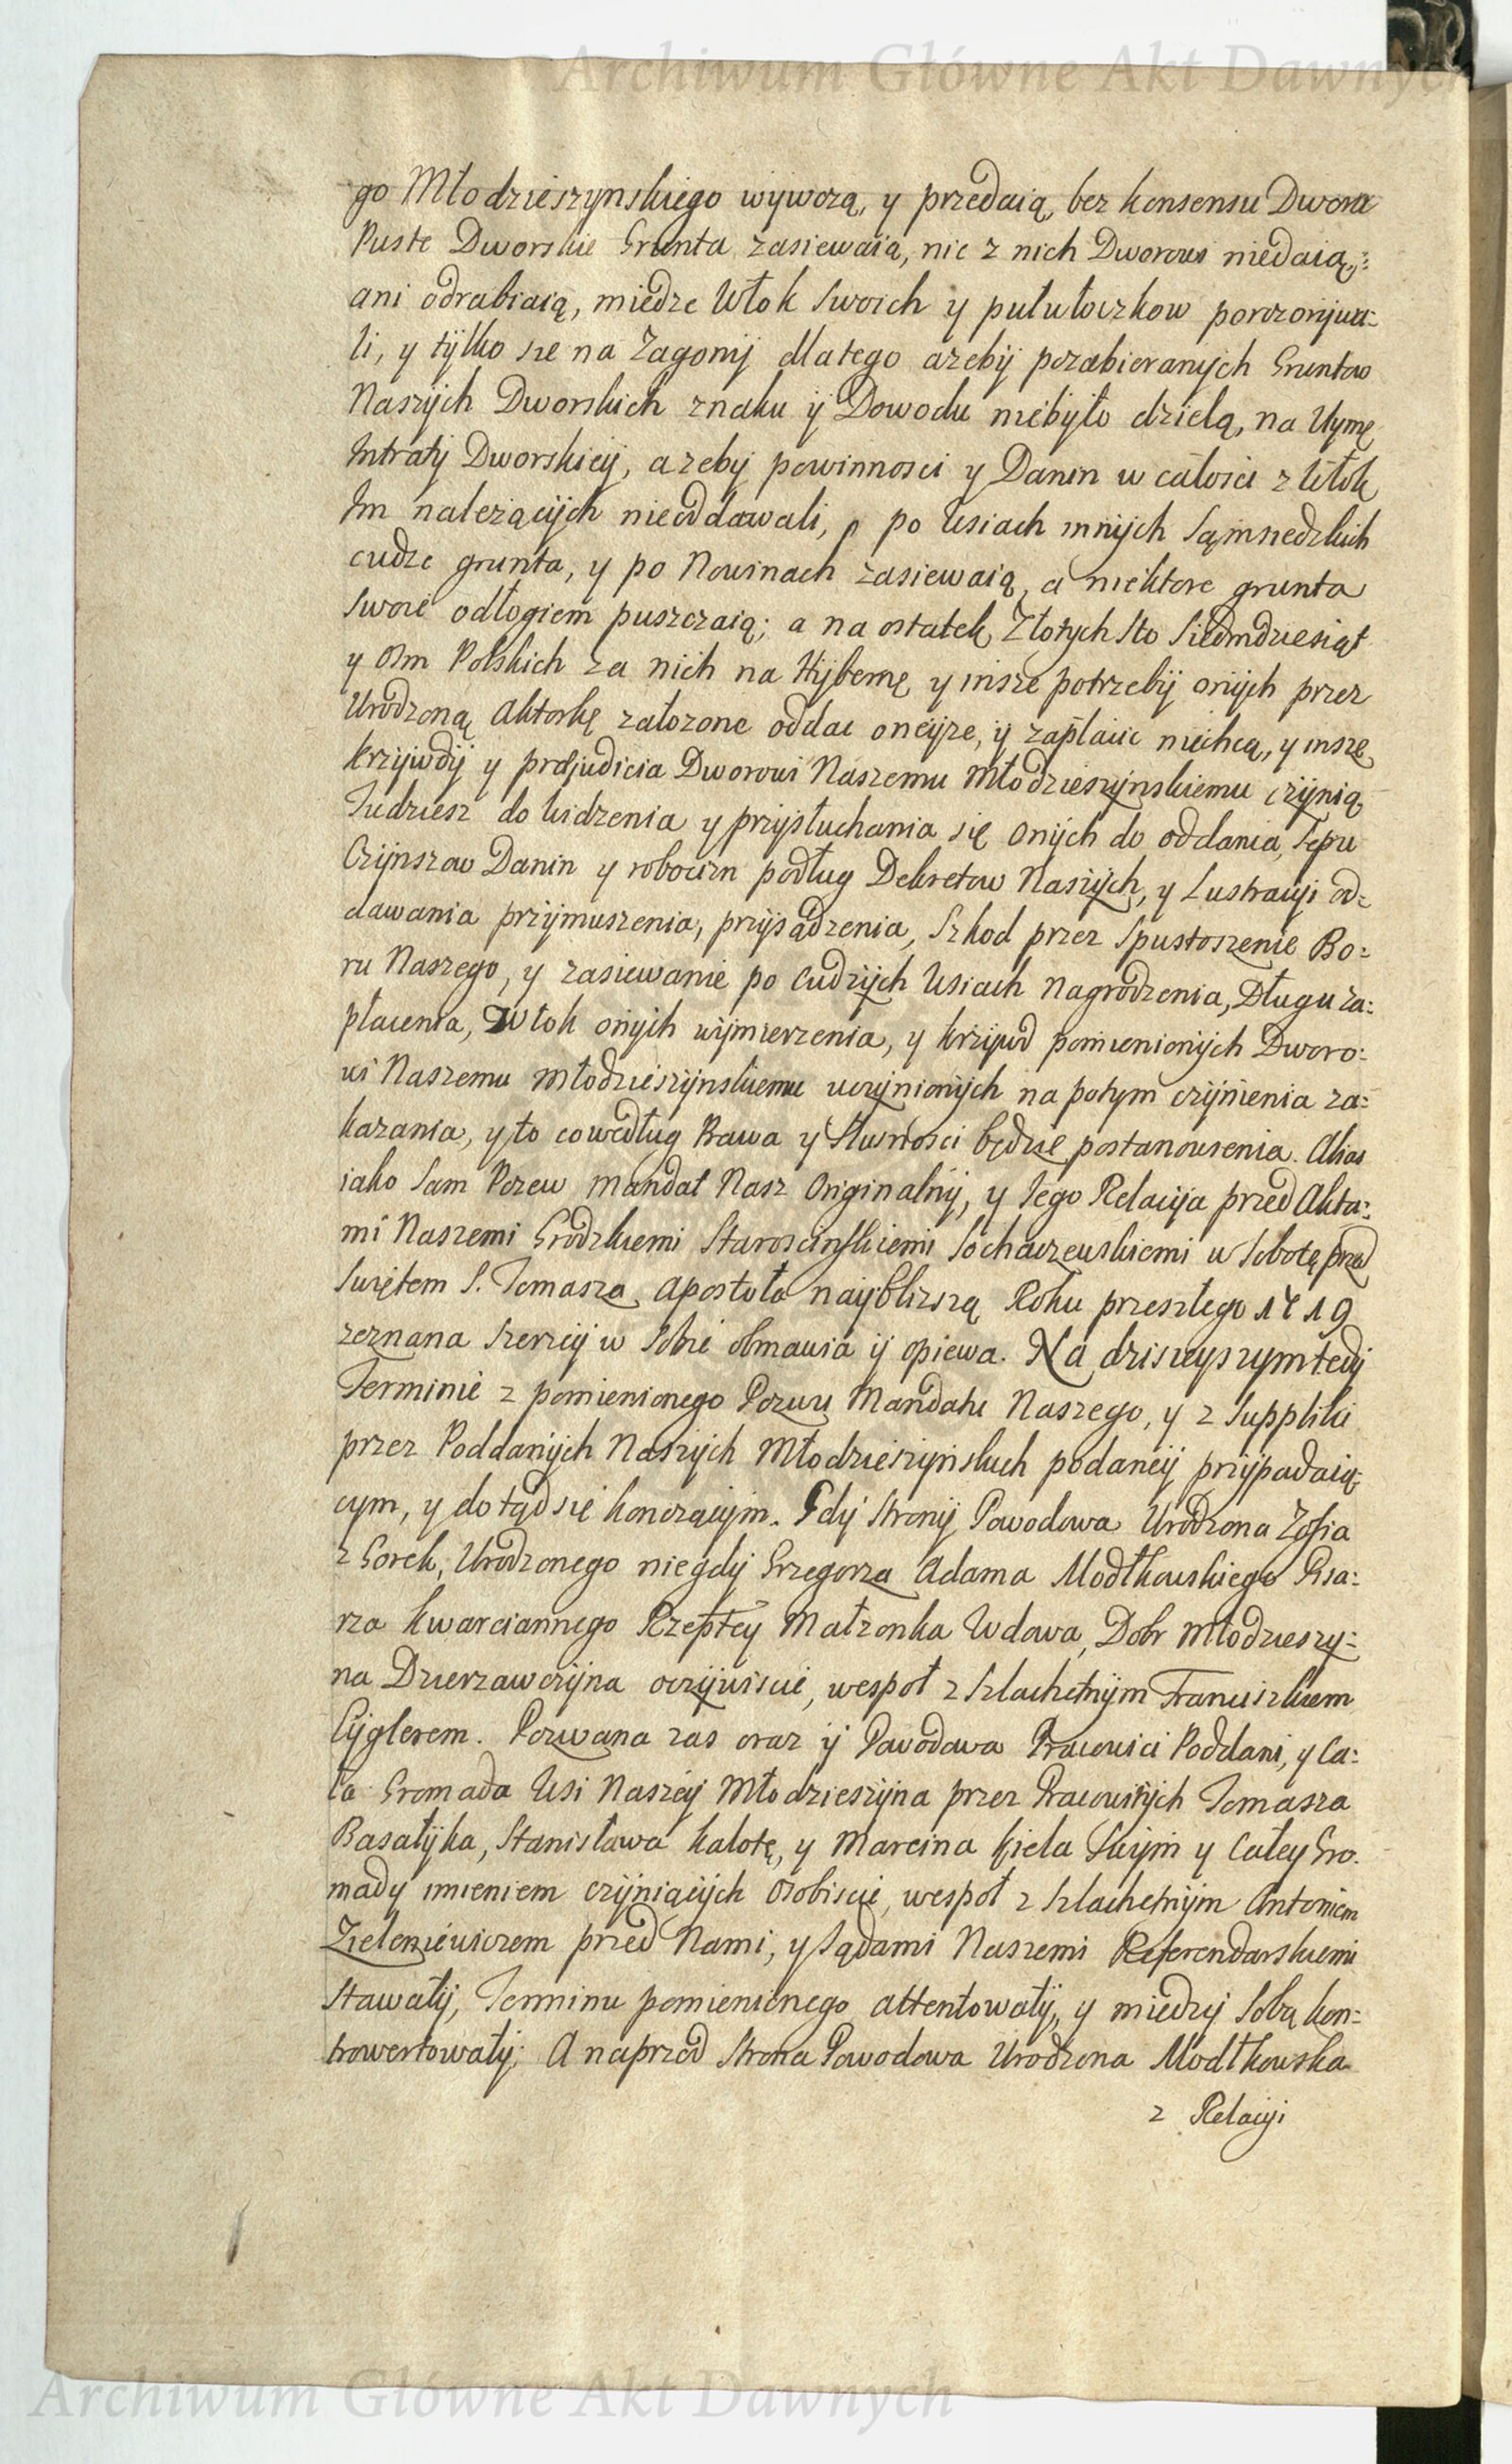 Archiwum Główne Akt Dawnych
go Młodzieszynskiego wywozą, y przedaią, bez konsensu Dwora
Puste Dworskie Grunta zasiewaią, nic z nich Dworowi niedaią,
ani odrabiaią, miedze Włok Swoich y pułwłoczkow porozorywa:
li, y tylko sie na Zagony dlatego azeby pozabieranych Gruntow
Naszych Dworskich znaku y Dowodu niebyło dzielą, na Uymę
Intraty Dworskiey, azeby powinnosci y Danin w całosci z Włok
Im nalezących nieoddawali, po Wsiach innych Sąmsiedzkich
cudze grunta, y po Nowinach zasiewaią, a niektore grunta
Swoie odłogiem puszczaią; a na ostatek Złotych Sto Siedmdziesiąt
y Osm Polskich za nich na Hybernę y insze potrzeby onych przez
Urodzoną Aktorkę załozone oddac oneyze, y zapłacic niechcą, y insze
krzywdy y præjudicia Dworowi Naszemu Młodzieszynskiemu czynią
Tudziesz do Widzenia y przysłuchania się onych do oddania, Sepu
Czynszow Danin y robocizn podług Dekretow Naszych, y Lustracyi od:
dawania przymuszenia, przysądzenia, Szkod przez Spustoszenie Bo:
ru Naszego, y zasiewanie po Cudzych Wsiach Nagrodzenia, Długu za:
płacenia, Włok onych wymierzenia, y krzywd pomienionych Dworo:
wi Naszemu Młodzieszynskiemu uczynionych na potym czynienia za:
kazania, y to co według Prawa y Słusnosci będzie postanowienia. Alias
iako Sam Pozew Mandat Nasz Originalny, y Iego Relacyia przed Akta:
mi Naszemi Grodzkiemi Staroscinskiemi Sochaczewskiemi w Sobotę przed
Swiętem S. Tomasza Apostoła nayblizszą Roku przeszłego 1719
zeznana Szerzey w Sobie obmawia y opiewa. Na dzisieyszym tedy
Terminie z pomienionego Pozwu Mandatu Naszego, y z Suppliki
przez Poddanych Naszych Młodzieszynskich podaney przypadaią:
cym, y do tąd się konczącym. Gdy Strony Powodowa Urodzona Zofia
z Gorek, Urodzonego niegdy Grzegorza Adama Modłkowskiego Pisa:
rza kwarciannego Rzepłtey Małzonka Wdowa, Dobr Młodzieszy:
na Dzierzawczyna oczywiscie, wespoł z Szlachetnym Franciszkiem
Cyglerem. Pozwana zas oraz y Powodowa Pracowici Poddani, y Ca:
ła Gromada Wsi Naszey Młodzieszyna przez Pracowitych Tomasza
Basałyka, Stanisława Kalotę, y Marcina Kiela Swym y Całey Gro.
mady imieniem czyniących Osobiscie, wespoł z Szlachetnym Antonim
Zieleniewiczem przed Nami, y Sądami Naszemi Referendarskiemi
Stawały, Terminu pomienionego attentowały, y miedzy Sobą kon:
trowertowały; A naprzod Strona Powodowa Urodzona Modłkowska
z Relacyi
Archiwum Główne Akt Dawnych